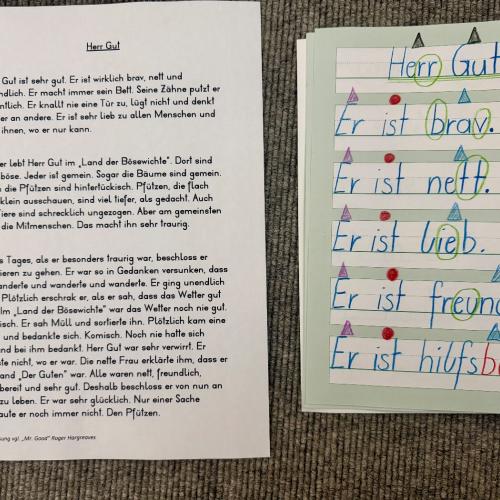 Herr Gut
Gut ist sehr gut. Er ist wirklich brav, nett und
ndlich. Er macht immer sein Bett. Seine Zähne putzt er
ntlich. Er knallt nie eine Tür zu, lügt nicht und denkt
er an andere. Er ist sehr lieb zu allen Menschen und
ihnen, wo er nur kann.
er lebt Herr Gut im „Land der Bösewichte“. Dort sind
böse. Jeder ist gemein. Sogar die Bäume sind gemein.
die Pfützen sind hintertückisch. Pfützen, die flach
klein ausschauen, sind viel tiefer, als gedacht. Auch
iere sind schrecklich ungezogen. Aber am gemeinsten
die Mitmenschen. Das macht ihn sehr traurig.
s Tages, als er besonders traurig war, beschloss er
ieren zu gehen. Er war so in Gedanken versunken, dass
anderte und wanderte und wanderte. Er ging unendlich
Plötzlich erschrak er, als er sah, dass das Wetter gut
Im „Land der Bösewichte“ war das Wetter noch nie gut.
isch. Er sah Müll und sortierte ihn. Plötzlich kam eine
und bedankte sich. Komisch. Noch nie hatte sich
and bei ihm bedankt. Herr Gut war sehr verwirrt. Er
ste nicht, wo er war. Die nette Frau erklärte ihm, dass er
and „Der Guten“ war. Alle waren nett, freundlich,
bereit und sehr gut. Deshalb beschloss er von nun an
zu leben. Er war sehr glücklich. Nur einer Sache
aute er noch immer nicht. Den Pfützen.
sung vgl. „Mr. Good“ Roger Hargreaves
Herr Gut
Er ist brav.
Er ist nett.
Er ist lieb.
Er ist freund
Er ist hilfsb